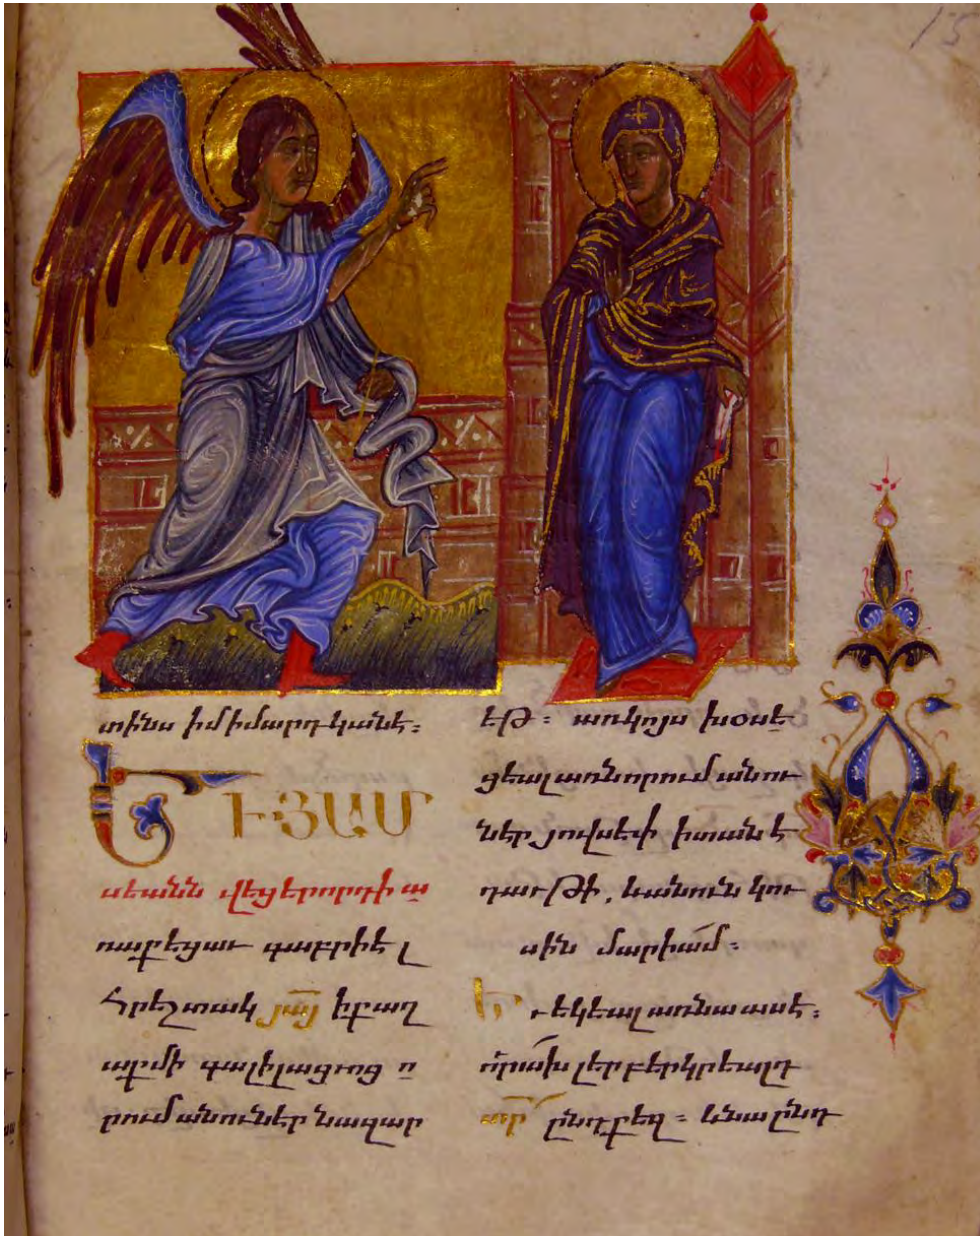 15
տինս իմ ի մարդկանէ։
ՒՅԱՄ
սեանն վեցերորդի ա
ռաքեցաւ գաբրիէլ
հրեշտակ յայ ի քաղ
աքմի գալիլացւոց ո
րում անուն էր նազար
էթ։ առ կոյս խօսե
ցեալ առն որում անու
ն էր յովսէփ ի տանէ
դաւթի, և անուն կու
սին մարիամ։
Եւ եկեալ առ նա ասէ.
ո՛րախ լեր բերկրեալդ
տր ընդ քեզ։ և նա ընդ